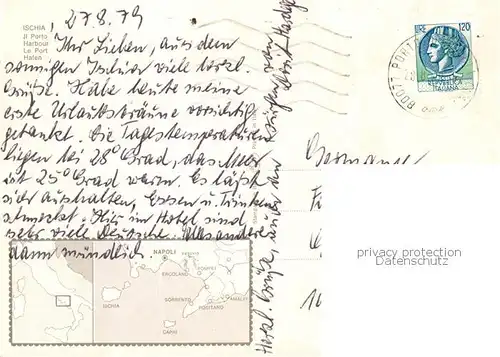 27.8.79
ISCHIA
Jl Porto
Harbour
Le Port
Hafen
Ihr Lieben, aus dem
sonnigen Ischia viele herzl.
Grüße. Habe heute meine
erste Urlaubsbräune vorsichtig
getankt. Die Tagestemperaturen
liegen bei 28° Grad, das Meer
ist 25° Grad warm. Es läßt
sich aushalten, Essen u. Trinken
schmeckt. Hier im Hotel sind
sehr viele Deutsche. Alles andere
dann mündlich.
Herzl. Grüße
LIRE 120
REPUBBLICA
ITALIANA
80077 PORT
privacy protection
Datenschutz
NAPOLI
ERCOLANO
POMPEI
SORRENTO
POSITANO
AMALFI
ISCHIA
CAPRI